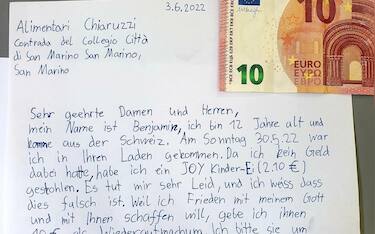 3.6.2022
Alimentari Chiaruzzi
Contrada del Collegio Città
di San Marino San Marino,
San Marino
10
10
EURO
ΕΥΡΩ
ЕВРО
Sehr geehrte Damen und Herren,
mein Name ist Benjamin, ich bin 12 Jahre alt und
komme aus der Schweiz. Am Sonntag 30.5.22 war
ich in Ihren Laden gekommen. Da ich kein Geld
dabei hatte, habe ich ein JOY Kinder-Ei (2.10 €)
gestohlen. Es tut mir sehr Leid, und ich weiss dass
dies falsch ist. Weil ich Frieden mit meinem Gott
und mit Ihnen schaffen will, gebe ich ihnen
10 € als Wiedergutmachung. Ich bitte sie um